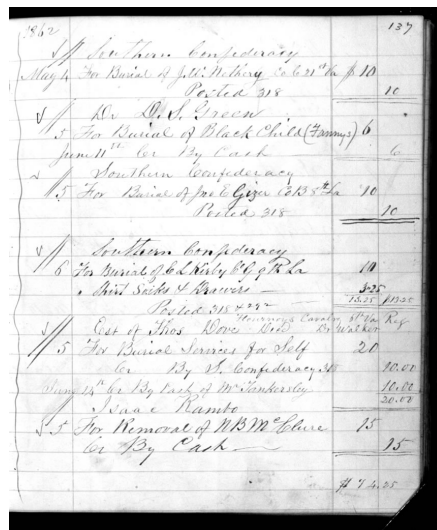 1862 137
Southern Confederacy
May 4 For Burial of J.W. Co C 21st Va $10
Posted 318 10
Dr D. S. Green
5 For Burial of Black Child (Fannys) 6
June 11st Cr By Cash 6
Southern Confederacy
5 For Burial of Jno E Gizer Co B 5th La 10
Posted 318 10
Southern Confederacy
6 For Burial of C L Kirby Co G 9th La 10
" Shirt Socks & 3.25
13.25 $13.25
Posted 318 & 292
Cavalry 5th Va Reg
Est of Thos Dove Decd Dr Walker
5 For Burial Services for Self 20
Cr By S. Confederacy 318 10.00
June 14th Cr By Cash of Mr Tankersley 10.00
20.00
Isaac Rambo
5 For Removal of N B McClure 15
Cr By Cash 15
$74.25